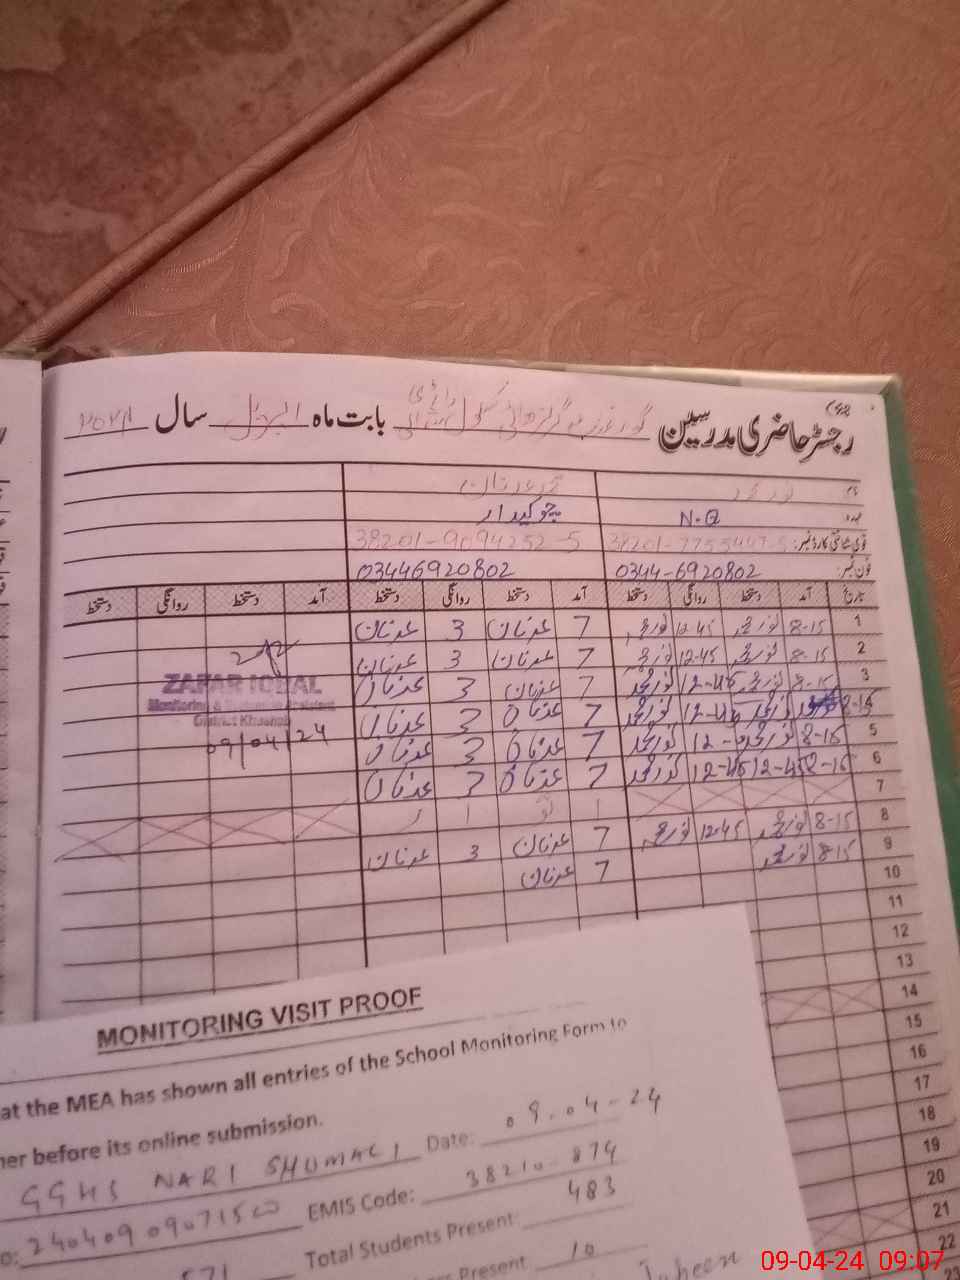 رجسٹر حاضری مدرسین گورنمنٹ گرلز ہائی سکول بابت ماہ اپریل سال ۲۰۲۴
نام نور محمد محمد عدنان
عہدہ N.Q چوکیدار
قومی شناختی کارڈ نمبر: 38201-7755447-5 38201-9094252-5
فون نمبر: 0344-6920802 03446920802
تاریخ آمد دستخط روانگی دستخط آمد دستخط روانگی دستخط آمد دستخط روانگی دستخط
1 8-15 نور محمد 12-45 نور محمد 7 عدنان 3 عدنان
2 8-15 نور محمد 12-45 نور محمد 7 عدنان 3 عدنان
3 8-15 نور محمد 12-45 نور محمد 7 عدنان 3 عدنان
4 8-15 نور محمد 12-45 نور محمد 7 عدنان 3 عدنان
5 8-15 نور محمد 12- نور محمد 7 عدنان 3 عدنان
6 8-15 12-45 12-45 نور محمد 7 عدنان 3 عدنان
7
8 8-15 نور محمد 12-45 نور محمد 7 عدنان 3 عدنان
9 8-15 نور محمد 7 عدنان
10
11
12
13
14
15
16
17
18
19
20
21
22
23
ZAFAR IQBAL
Monitoring & Evaluation Assistant
District Khushab
09/04/24
MONITORING VISIT PROOF
at the MEA has shown all entries of the School Monitoring Form to
her before its online submission.
GGHS NARI SHUMALI Date: 09-04-24
o: 24040909071500 EMIS Code: 38210-874
571 Total Students Present: 483
Present 10
09-04-24 09:07